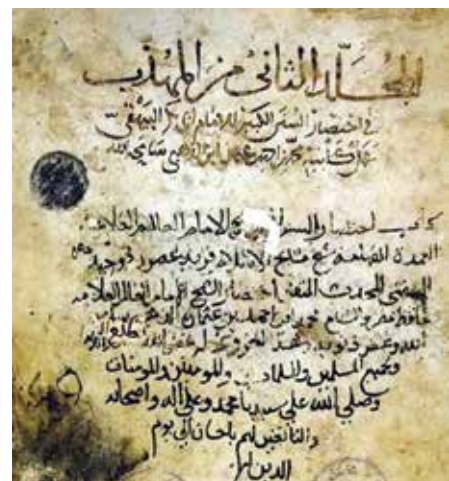 المجلد الثانى من المهذب
فى اختصار السنن الكبير للامام ابى بكر البيهقى
عمل كاتبه محمد بن احمد بن عثمان ابن الذهبى سامحه الله
كتاب اختصار السنن الامام العالم العلامه
العمدة شيخ الاسلام فريد عصره وحيد دهره
المفتى المحدث المتقن اختصار الشيخ الامام العالم العلامه
حافظ مصر والشام محمد بن احمد بن عثمان الذهبى
الله وغفر ذنوبه
وجميع المسلمين والمسلمات والمؤمنين والمومنات
وصلى الله على سيدنا محمد وعلى اله واصحابه
والتابعين لهم باحسان الى يوم
الدين